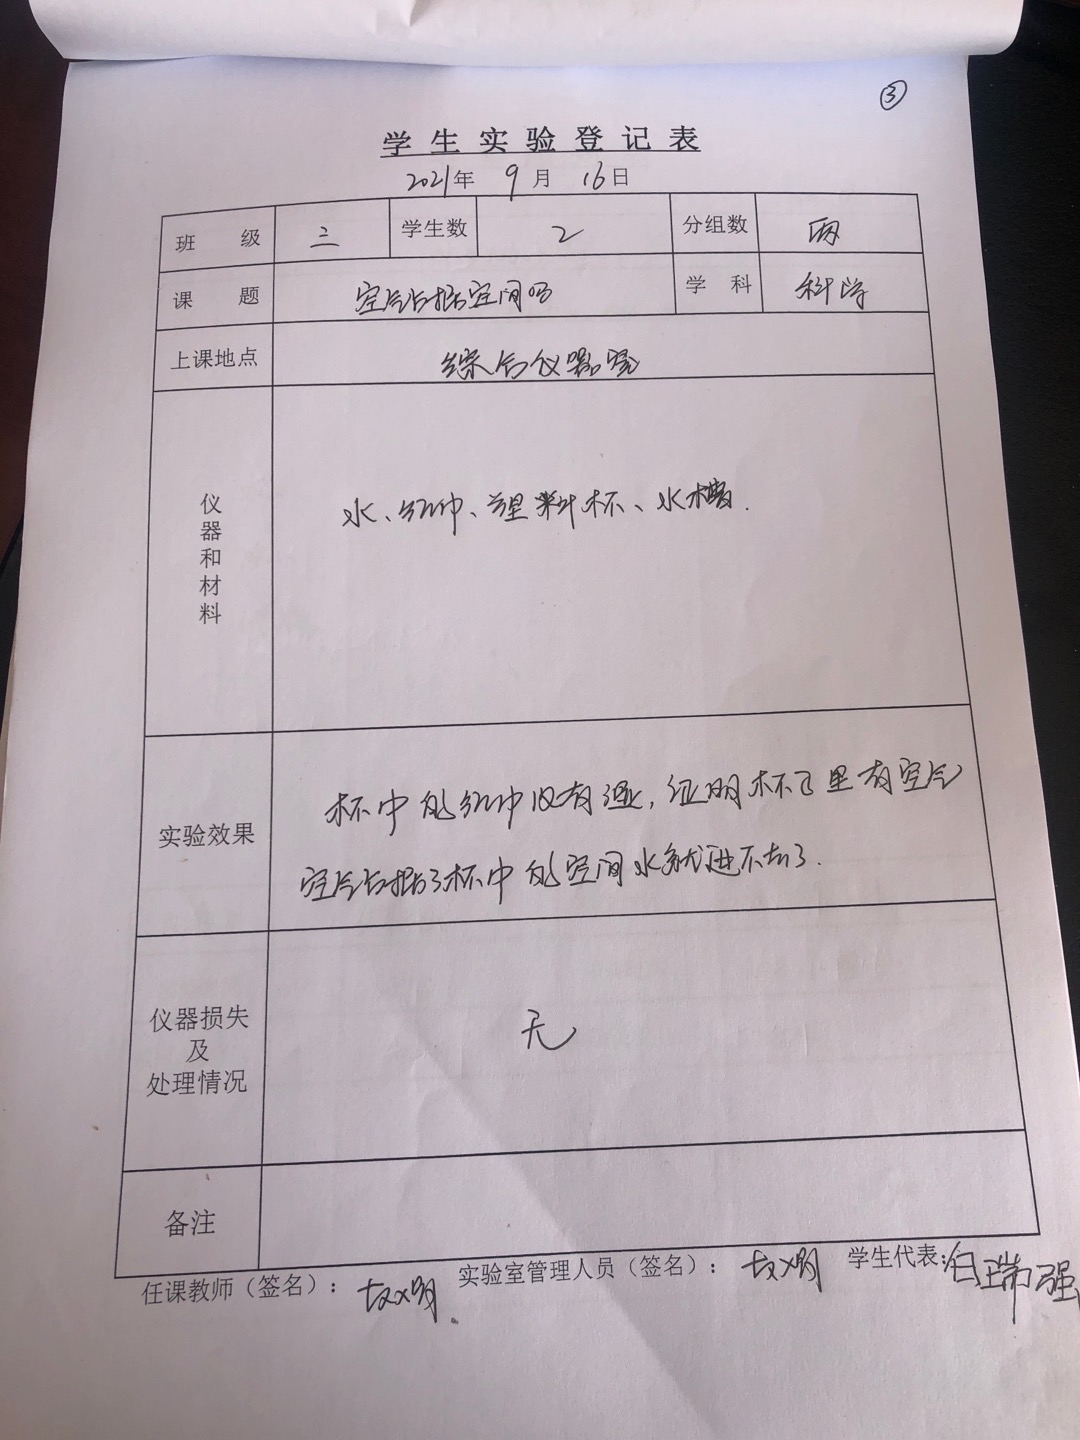 ③
学生实验登记表
2021年 9月 16日
班级 三 学生数 2 分组数 两
课题 空气占据空间吗 学科 科学
上课地点 综合仪器室
仪器和材料 水、纸巾、塑料杯、水槽.
实验效果 杯中的纸巾没有湿,证明杯子里有空气
空气占据了杯中的空间水就进不去了.
仪器损失
及
处理情况 无
备注
任课教师(签名): 实验室管理人员(签名): 学生代表: 白瑞强